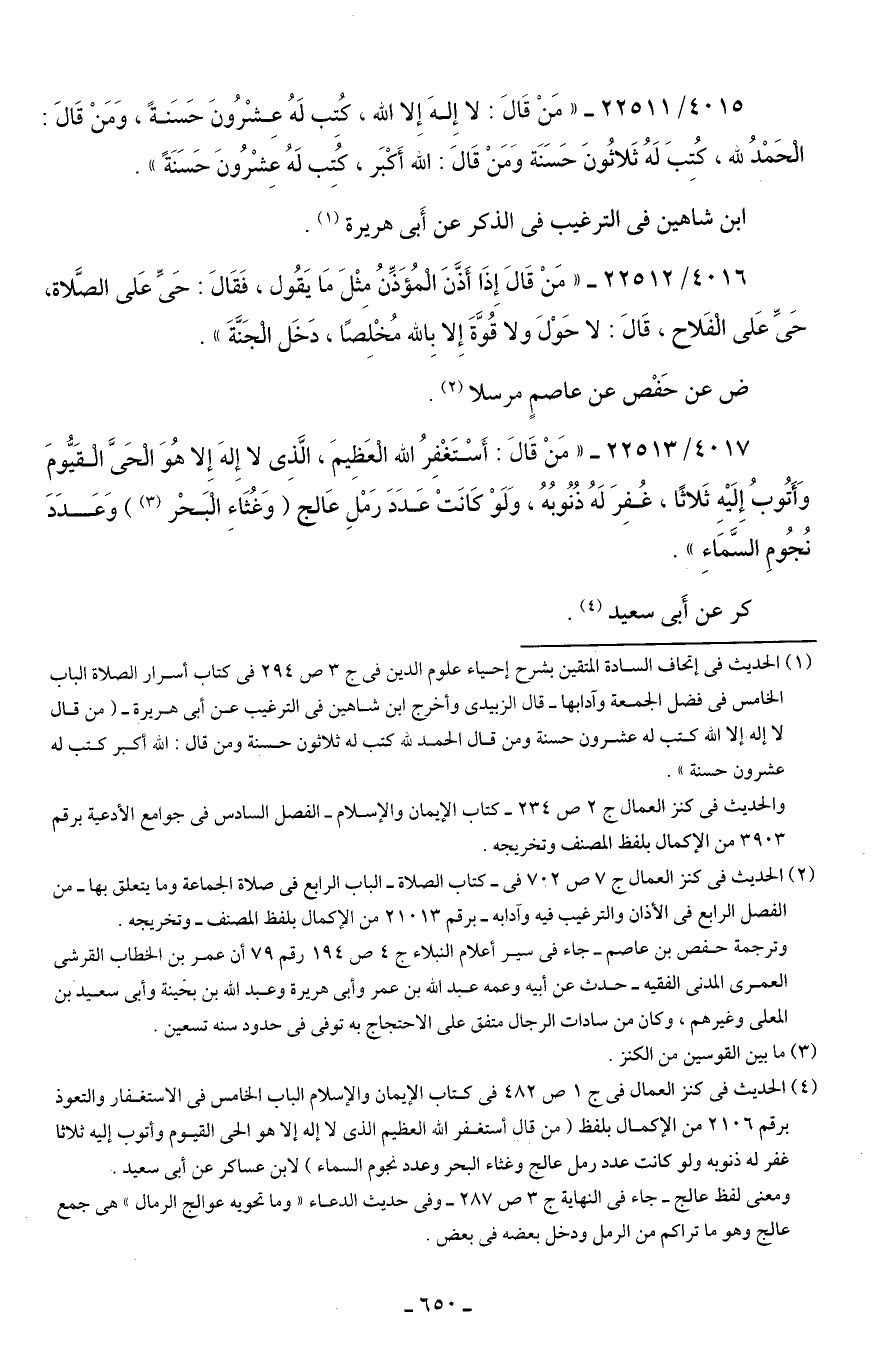 ٤٠١٥/ ٢٢٥١١ ـ « مَنْ قَالَ : لا إِلـهَ إِلا الله ، كُتِب لَهُ عِـشْرُونَ حَسَنـةً ، وَمَنْ قَالَ :
الْحَمْدُ لله ، كُتِبَ لَهُ ثَلاثُونَ حَسَنَة وَمَنْ قَالَ : الله أَكْبَر ، كُتِب لَهُ عِشْرُونَ حَسَنَةً » .
ابن شاهين فى الترغيب فى الذكر عن أَبى هريرة (١) .
٤٠١٦/ ٢٢٥١٢ ـ « مَنْ قَالَ إِذَا أَذَّنَ الْمُؤَذِّنُ مِثْلَ مَا يَقُول ، فَقَالَ : حَىِّ عَلى الصَّلَاة،
حَىِّ عَلَى الْفَلَاح ، قَالَ : لا حَوْلَ ولا قُوَّةَ إِلا بِالله مُخْلِصًا ، دَخَل الْجَنَّةَ » .
ض عن حَفْص عن عاصمٍ مرسلا (٢) .
٤٠١٧/ ٢٢٥١٣ ـ « مَنْ قَالَ : أَسْـتَغْفِرُ الله الْعَظِيمَ ، الَّذِى لا إِلهَ إِلا هُوَ الْحَىَّ الْـقَيُّومَ
وَأَتُوبُ إِلَيْهِ ثَلَاثًا ، غُـفِرَ لَهُ ذُنُوبُهُ ، ولَوْ كَانَتْ عَـدَدَ رَمْلِ عَالِج ( وَغُثَاء الْبَـحْر (٣) ) وَعَــدَدَ
نُجُومِ السَّمَاءِ » .
كر عن أَبى سعيد (٤) .
(١) الحديث فى إتحاف السـادة المتقين بشرح إحيـاء علوم الدين فى ج ٣ ص ٢٩٤ فى كتاب أسـرار الصلاة الباب
الخامس فى فضل الجمـعة وآدابها ـ قال الزبيدى وأخرج ابن شـاهين فى الترغيب عـن أبى هـريرة ـ ( من قـال
لا إله إلا الله كـتب له عشـرون حسنة ومن قـال الحمـد لله كتب له ثلاثون حـسنة ومن قال : الله أكـبر كـتب له
عشرون حسنة » .
والحديث فى كنز العمال ج ٢ ص ٢٣٤ ـ كتاب الإيمان والإسـلام ـ الفصل السادس فى جوامع الأدعية برقم
٣٩٠٣ من الإكمال بلفظ المصنف وتخريجه .
(٢) الحديث فى كنز العمال ج ٧ ص ٧٠٢ فى ـ كتاب الصلاة ـ الباب الرابع فى صلاة الجماعة وما يتعلق بها ـ من
الفصل الرابع فى الأذان والترغيب فيه وآدابه ـ برقم ٢١٠١٣ من الإكمال بلفظ المصنف ـ وتخريجه .
وترجمة حـفص بن عاصم ـ جاء فى سيـر أعلام النبلاء ج ٤ ص ١٩٤ رقم ٧٩ أن عمـر بن الخطاب القرشى
العمـرى المدنى الفقيه ـ حـدث عن أبيه وعمه عبـد الله بن عمر وأبى هريرة وعبـد الله بن بحينة وأبى سعـيد بن
المعلى وغيرهم ، وكان من سادات الرجال متفق على الاحتجاج به توفى فى حدود سنه تسعين .
(٣) ما بين القوسين من الكنز .
(٤) الحديث فى كنز العمال فى ج ١ ص ٤٨٢ فى كـتاب الإيمان والإسلام الباب الخامس فى الاستغـفار والتعوذ
برقم ٢١٠٦ من الإكمـال بلفظ ( من قال أستغـفر الله العظيم الذى لا إله إلا هو الحى القيـوم وأتوب إليه ثلاثا
غفر له ذنوبه ولو كانت عدد رمل عالج وغثاء البحر وعدد نجوم السماء ) لابن عساكر عن أبى سعيد .
ومعنى لفظ عالج ـ جاء فى النهاية ج ٣ ص ٢٨٧ ـ وفى حديث الدعـاء « وما تحويه عوالج الرمال » هى جمع
عالج وهو ما تراكم من الرمل ودخل بعضه فى بعض .
ـ ٦٥٠ ـ